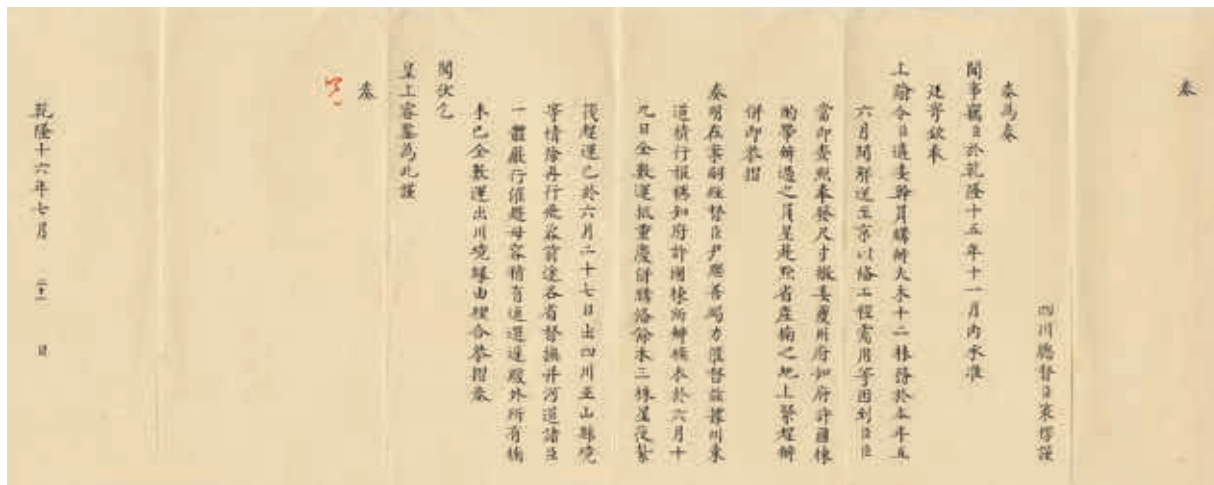 奏
四川總督臣策楞謹
奏為奏
聞事竊臣於乾隆十五年十一月內承准
廷寄欽奉
上諭令臣遴委幹員購辦大木十二株務於本年五
六月間解送至京以備工程需用等因到臣臣
當即查照奉發尺寸檄委夔州府知府許國棟
酌帶辦過之員星赴黔省產楠之地上緊趕辦
併即恭摺
奏明在案嗣經督臣尹繼善竭力催督茲據川東
道積行報稱知府許國棟所辦楠木於六月十
九日全數運抵重慶併購備餘木三株星夜紮
筏趕運已於六月二十七日出四川巫山縣境
等情除再行飛咨前途各省督撫并河道諸臣
一體嚴行催趲毋容稍有逗遛遲緩外所有楠
木已全數運出川境緣由理合恭摺奏
聞伏乞
皇上睿鑒為此謹
奏
覽
乾隆十六年七月 二十一 日